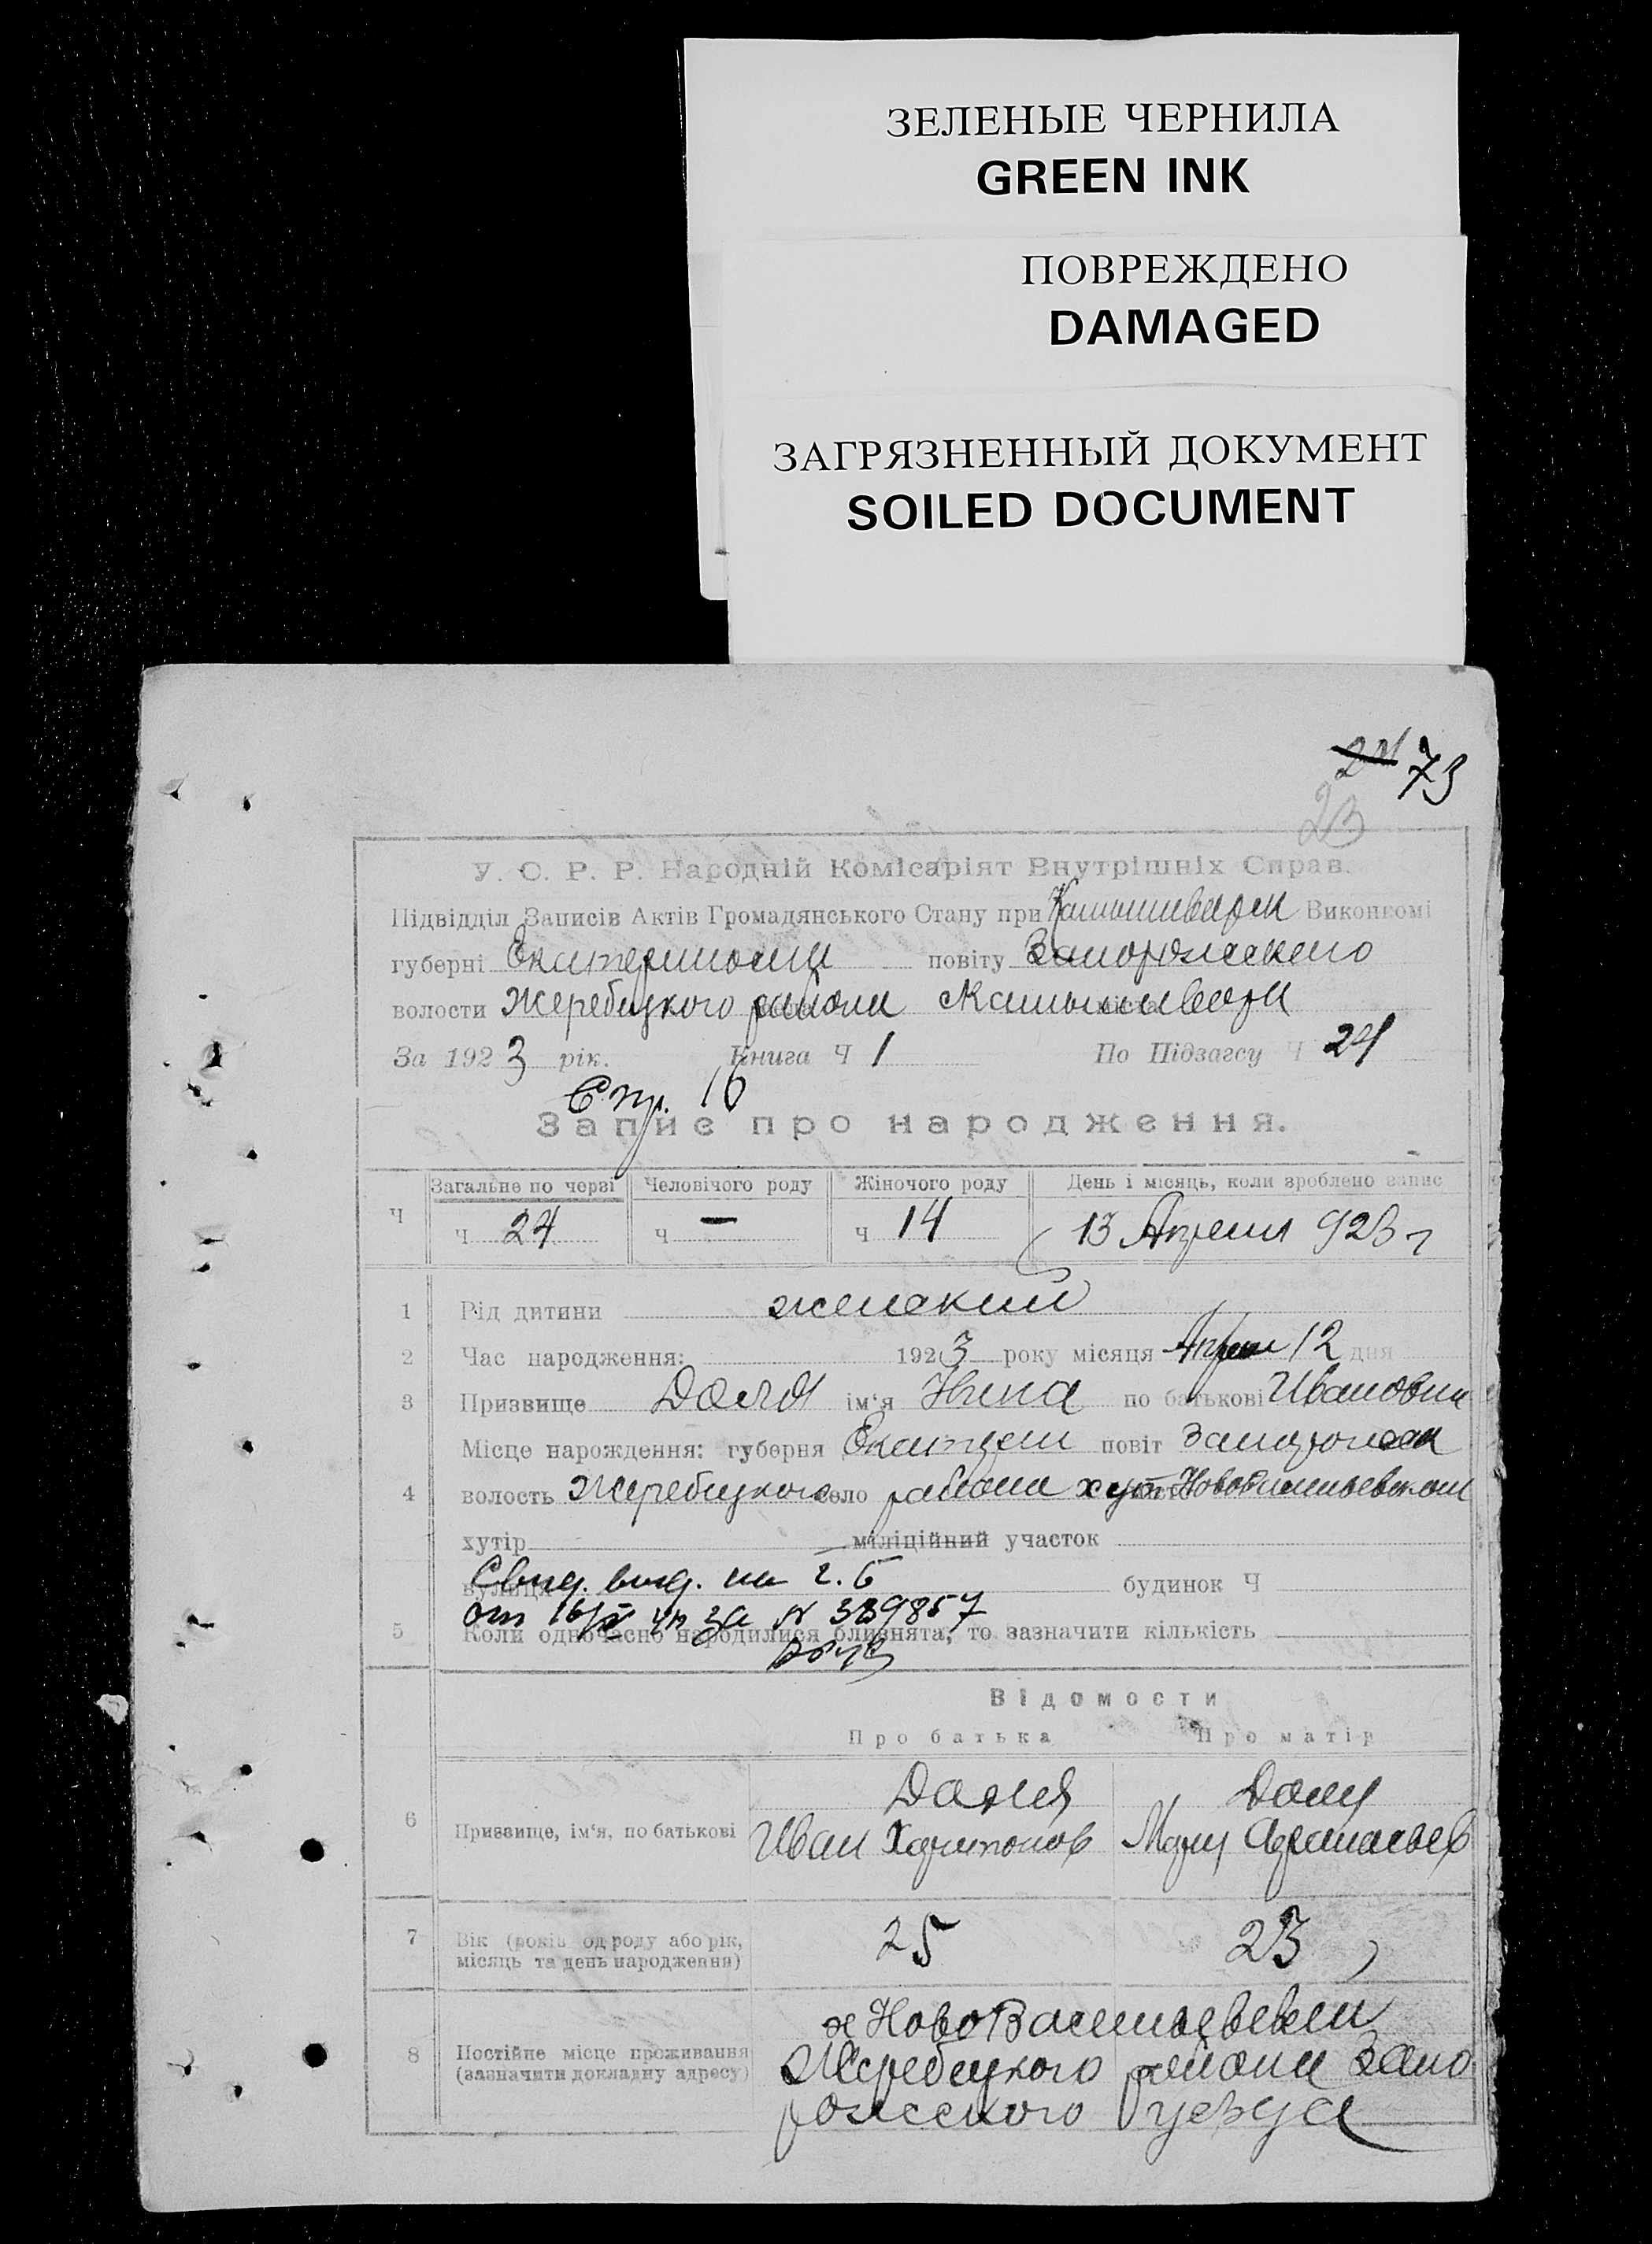 ЗЕЛЕНЫЕ ЧЕРНИЛА
GREEN INK
ПОВРЕЖДЕНО
DAMAGED
ЗАГРЯЗНЕННЫЙ ДОКУМЕНТ
SOILED DOCUMENT
24 73
23
У. С. Р. Р. Народній Комісаріят Внутрішніх Справ.
Підвідділ Записів Актів Громадянського Стану при Виконкомі
губерні повіту Запорожского
волости Жеребецкого района
За 1923 рік. Книга Ч 1 По Підзагсу Ч 24
Спр. 16
Запис про народження.
Загальне по черзі Человічого роду Жіночого роду День і місяць, коли зроблено запис
Ч ч 24 ч — ч 14 13 Апреля 923 г
1 Рід дитини женский
2 Час народження: 1923 року місяця Апреля 12 дня
3 Призвище ім‘я Нина по батькові Ивановна
Місце народження: губерня Екатерин повіт Запорожск
4 волость Жеребецкого село района хут
хутір міліційний участок
вулиця Свид. выд. на будинок Ч
от за № 339857
5 Коли одночасно народилися близнята, то зазначити кількість
Відомости
Про батька Про матір
6 Призвище, ім‘я, по батькові
Иван Харитонов Мария Афанасьев
7 Вік (років од роду або рік, 25 23
місяць та день народження)
х НовоВасильевский
8 Постійне місце проживання Жеребецкого района Запо
(зазначити докладну адресу)
рожского уезда